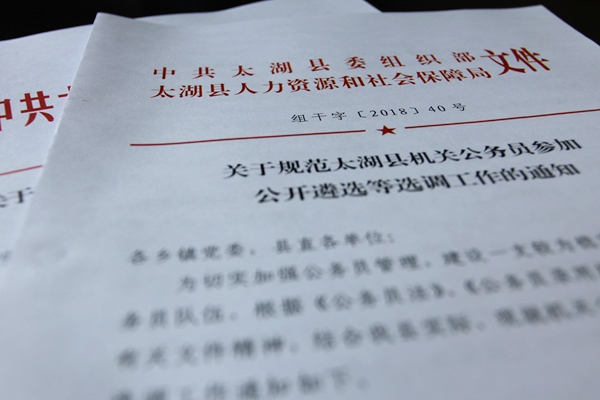 中共太湖县委组织部
太湖县人力资源和社会保障局 文件
组干字〔2018〕40号
关于规范太湖县机关公务员参加
公开遴选等选调工作的通知
各乡镇党委，县直各单位：
为切实加强公务员管理，建设一支较为稳
务员队伍，根据《公务员法》、《公务员录用
有关文件精神，结合我县实际，现就机关
调工作通知如下。
中共
关于